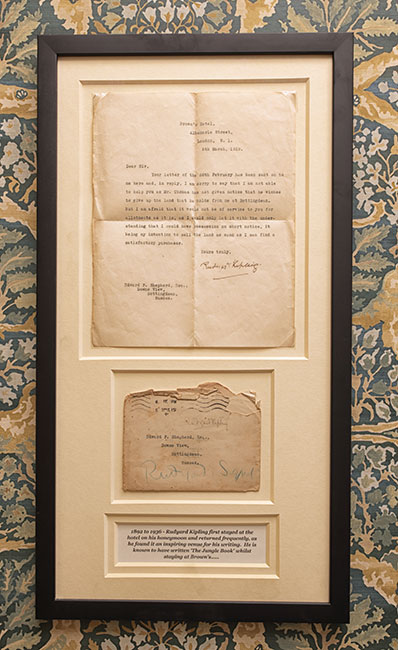 Brown's Hotel,
Albemarle Street,
London, W. 1.
4th March, 1919.
Dear Sir,
Your letter of the 26th February has been sent on to
me here and, in reply, I am sorry to say that I am not able
to help you as Mr. has not given notice that he wishes
to give up the land that he holds from me at Rottingdean.
But I am afraid that it would not be of service to you for
allotments as it is, as I would only let it with the under-
standing that I could have possession on short notice, it
being my intention to sell the land as soon as I can find a
satisfactory purchaser.
Yours truly,
Rudyard Kipling.
Edward P. Shepherd, Esq.,
Downs View,
Rottingdean,
Sussex.
Edward P. Shepherd, Esq.,
Downs View,
Rottingdean,
Sussex.
1892 to 1936 - Rudyard Kipling first stayed at the
hotel on his honeymoon and returned frequently, as
he found it an inspiring venue for his writing. He is
known to have written 'The Jungle Book' whilst
staying at Brown's.....